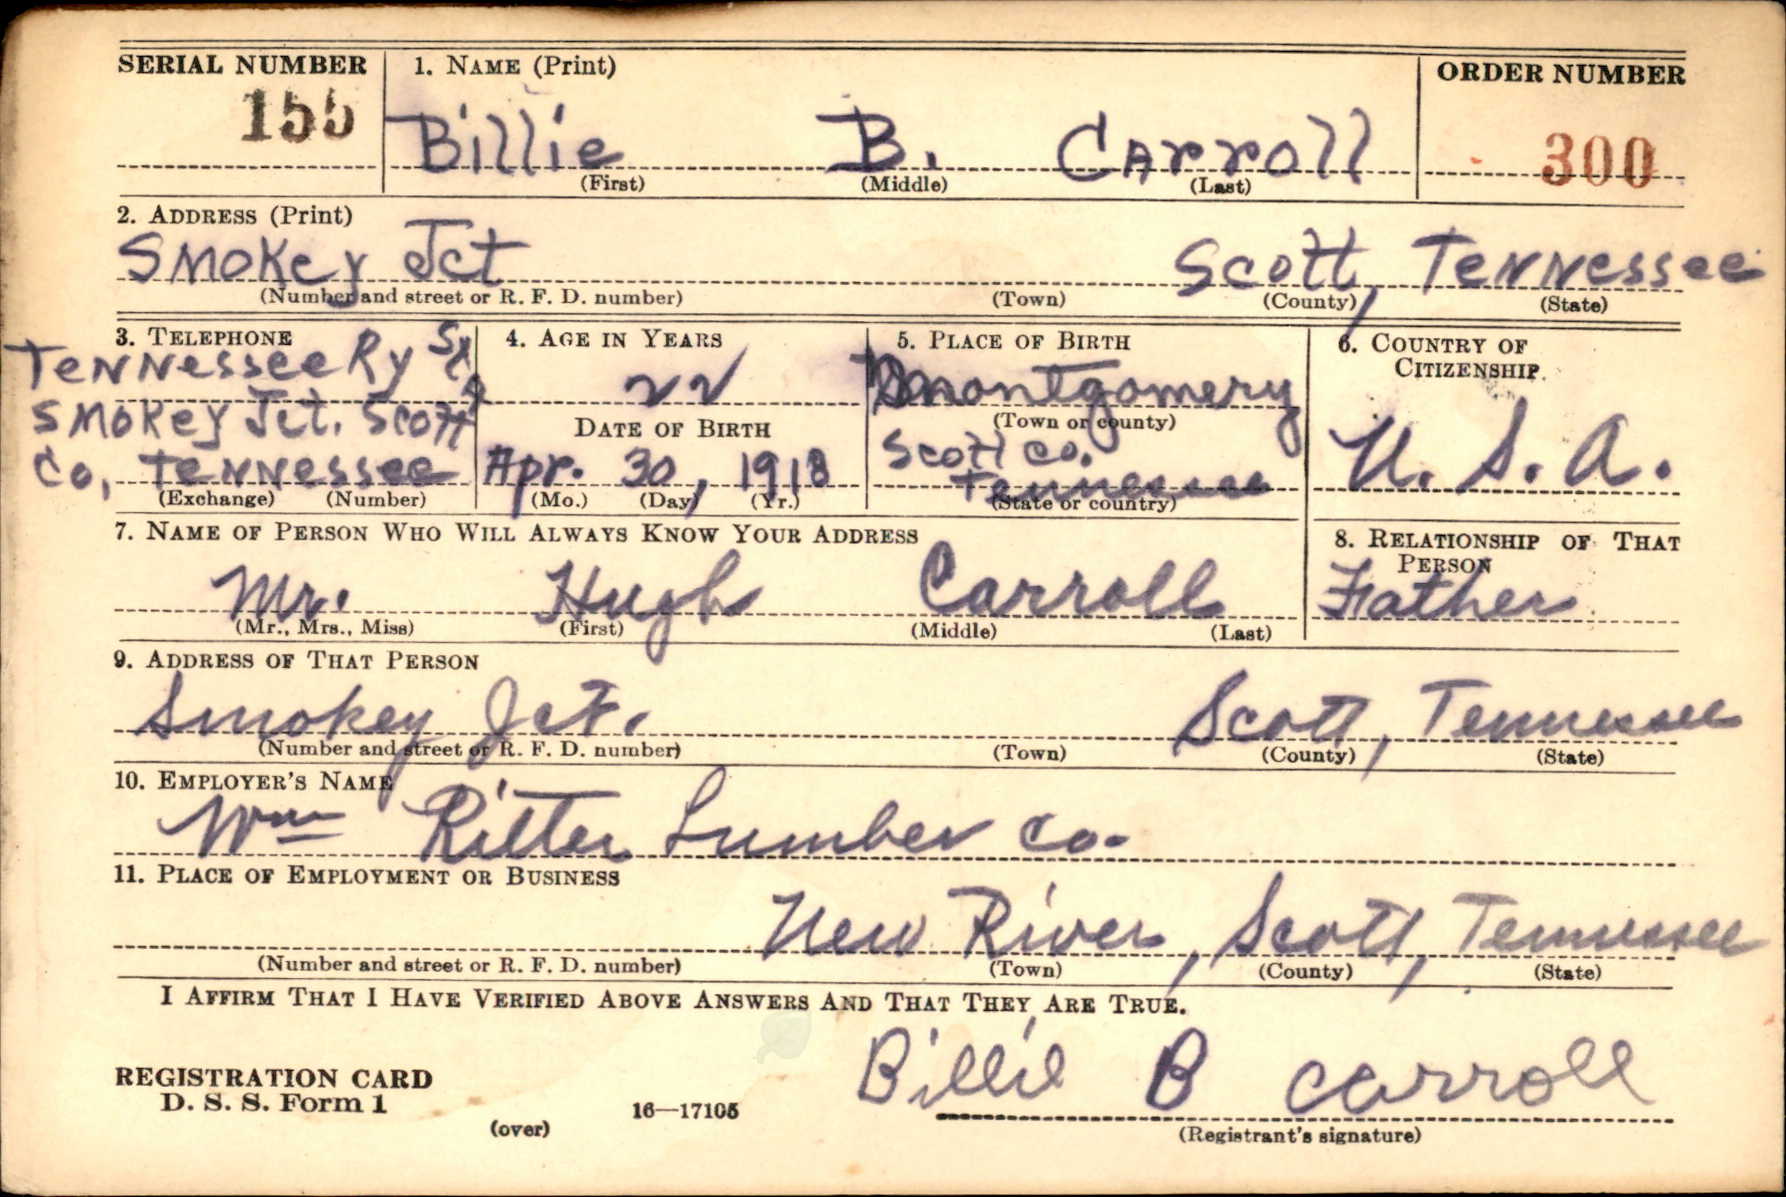 SERIAL NUMBER 1. NAME (Print) ORDER NUMBER
155 Billie B. Carroll 300
(First) (Middle) (Last)
2. ADDRESS (Print)
Smokey Jct Scott, Tennessee
(Number and street or R. F. D. number) (Town) (County) (State)
3. TELEPHONE 4. AGE IN YEARS 5. PLACE OF BIRTH 6. COUNTRY OF CITIZENSHIP
Tennessee Ry 22 Montgomery
Smokey Jct. Scott DATE OF BIRTH (Town or county)
Scott Co. U. S. A.
Co, Tennessee Apr. 30, 1918 Tennessee
(Exchange) (Number) (Mo.) (Day) (Yr.) (State or country)
7. NAME OF PERSON WHO WILL ALWAYS KNOW YOUR ADDRESS 8. RELATIONSHIP OF THAT PERSON
Mr. Hugh Carroll Father
(Mr., Mrs., Miss) (First) (Middle) (Last)
9. ADDRESS OF THAT PERSON
Smokey Jct. Scott, Tennessee
(Number and street or R. F. D. number) (Town) (County) (State)
10. EMPLOYER'S NAME
Wm Ritter Lumber Co.
11. PLACE OF EMPLOYMENT OR BUSINESS
New River, Scott, Tennessee
(Number and street or R. F. D. number) (Town) (County) (State)
I AFFIRM THAT I HAVE VERIFIED ABOVE ANSWERS AND THAT THEY ARE TRUE.
Billie B Carroll
REGISTRATION CARD
D. S. S. Form 1 16—17105
(over) (Registrant's signature)